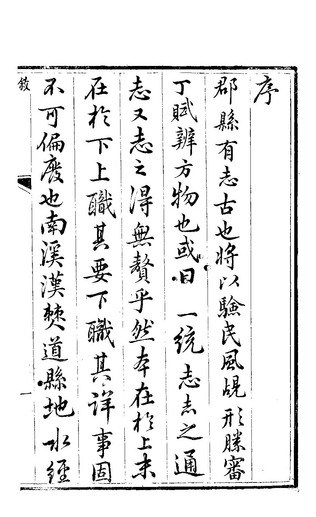 序
郡縣有志古也將以驗民風覘形勝審
丁賦辨方物也或曰一統志志之通
志又志之得無贅乎然本在於上末
在於下上職其要下職其詳事固
不可偏廢也南溪漢僰道縣地水經
敘
一